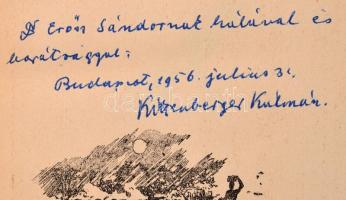 Dr Erős Sándornak hálával és
barátsággal:
Budapest, 1956. július 31.
Kittenberger Kálmán.